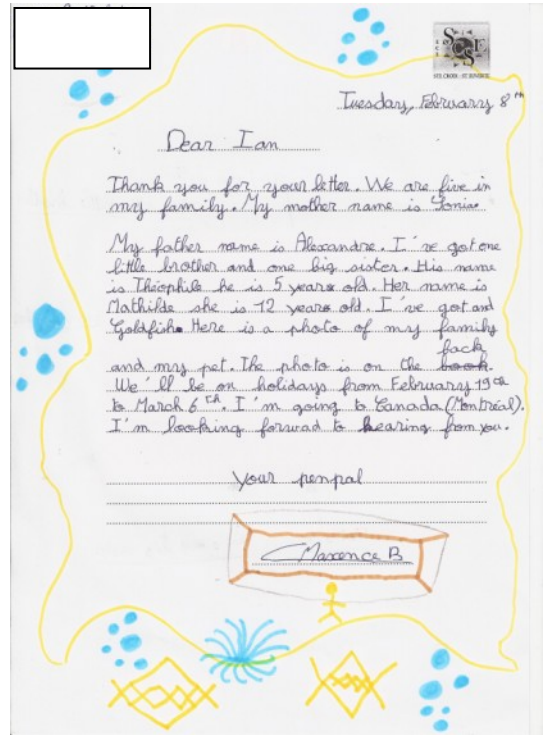 SCSE
STE CROIX - ST EUVERTE
Tuesday, February 8th
Dear Ian
Thank you for your letter. We are five in
my family. My mother name is Sonia.
My father name is Alexandre. I've got one
little brother and one big sister. His name
is Théophile he is 5 years old. Her name is
Mathilde she is 12 years old. I've got and
Goldfish. Here is a photo of my family
back
and my pet. The photo is on the book.
We'll be on holidays from February 19th
to Marah 6th. I'm going to Canada (Montréal).
I'm looking forwad to hearing from you.
your penpal
Maxence B